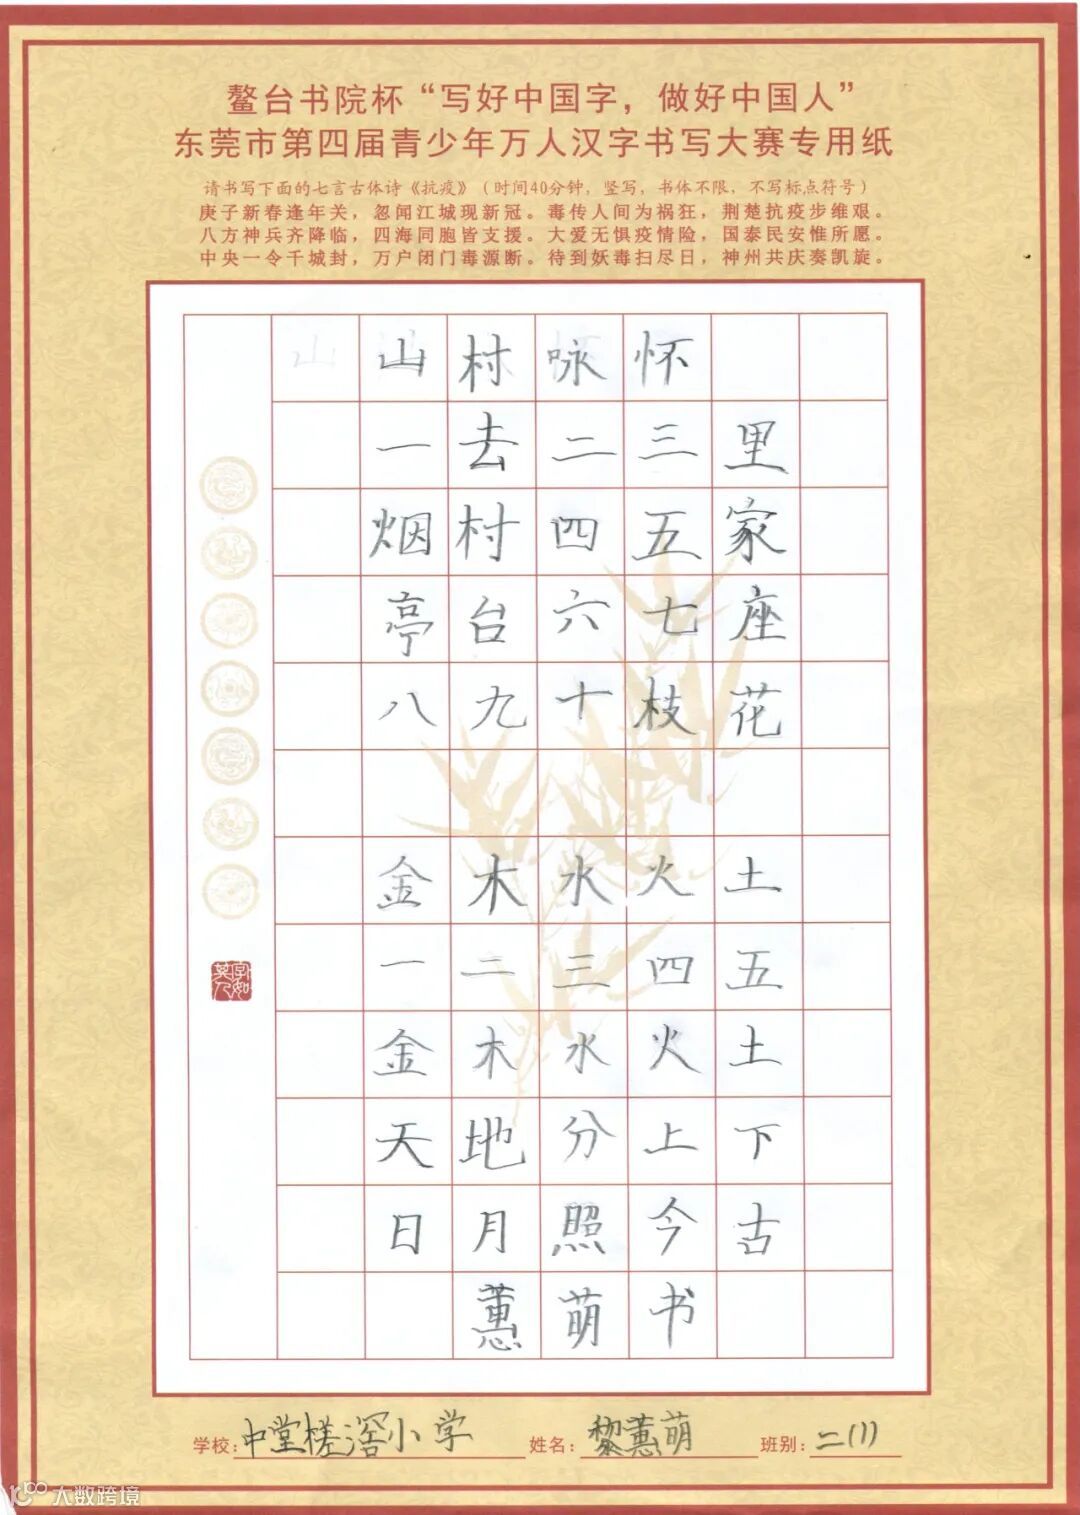 鳌台书院杯“写好中国字，做好中国人”
东莞市第四届青少年万人汉字书写大赛专用纸
请书写下面的七言古体诗《抗疫》（时间40分钟，竖写，书体不限，不写标点符号）
庚子新春逢年关，忽闻江城现新冠。毒传人间为祸狂，荆楚抗疫步维艰。
八方神兵齐降临，四海同胞皆支援。大爱无惧疫情险，国泰民安惟所愿。
中央一令千城封，万户闭门毒源断。待到妖毒扫尽日，神州共庆奏凯旋。
山村咏怀
一去二三里
烟村四五家
亭台六七座
八九十枝花
金木水火土
一二三四五
金木水火土
天地分上下
日月照今古
蕙萌书
字如其人
学校：中堂槎滘小学 姓名：黎蕙萌 班别：二(1)
大数跨境